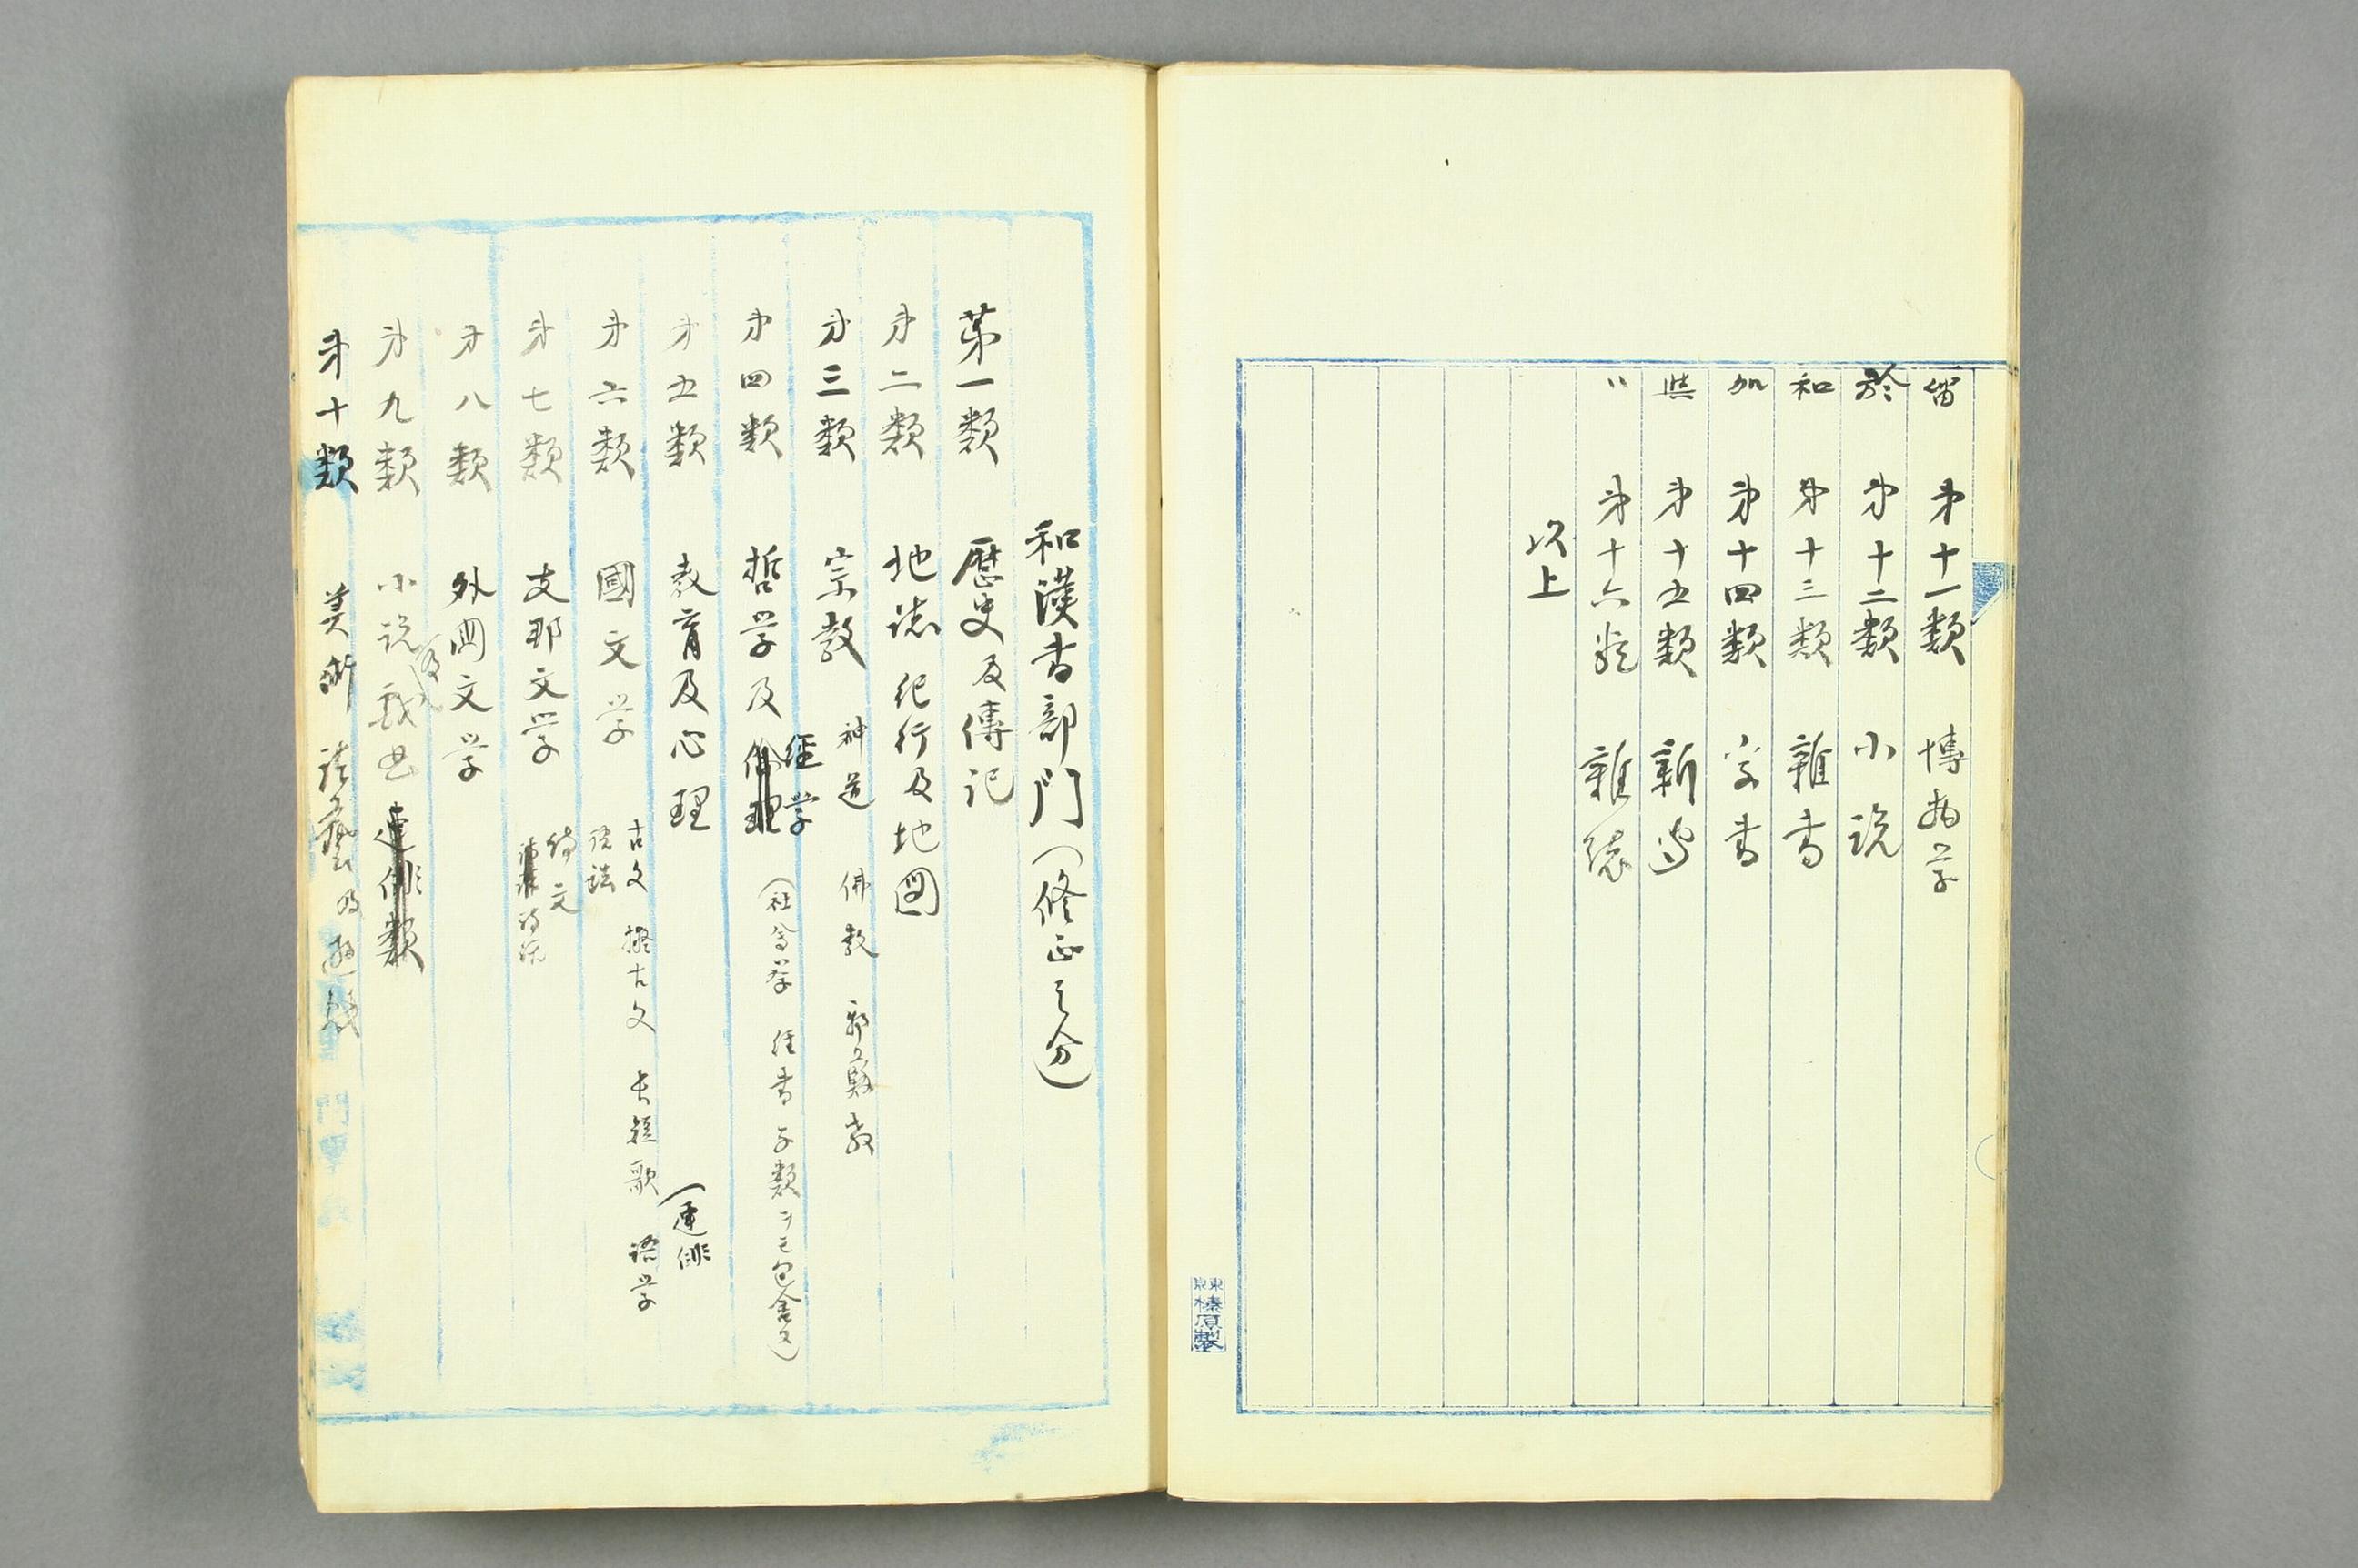 留 第十一類 博物学
於 第十二類 小説
和 第十三類 雑書
加 第十四類 字書
与 第十五類 新聞
〃 第十六類 雑誌
以上
東京 榛原製
和漢書部門（修正之分）
第一類 歴史及傳記
第二類 地誌 紀行及地図
第三類 宗教 神道 佛教 耶蘇教
第四類 哲学及倫理 経学 （社会学 経書 子類ヲモ包含ス）
第五類 教育及心理
第六類 國文学 古文 擬古文 長短歌 （連俳 語学
第七類 支那文学 詩文 詩話
第八類 外国文学
第九類 小説 及 戯曲 連俳類
第十類 美術 諸藝及遊戯